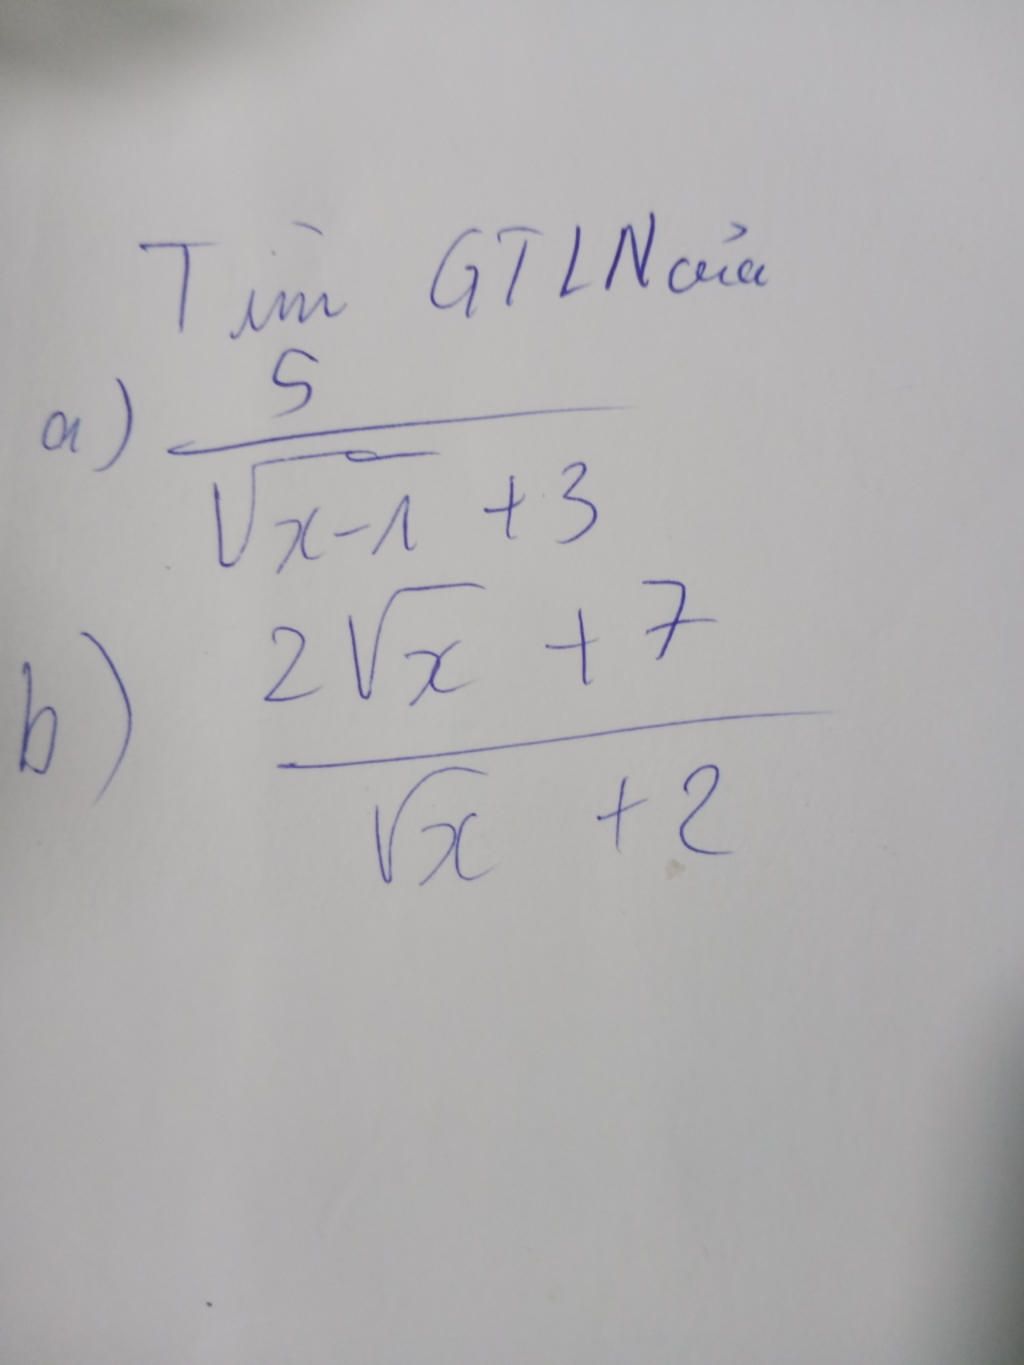 Tìm GTLN của
a) 5
√x-1 + 3
b) 2√x + 7
√x + 2